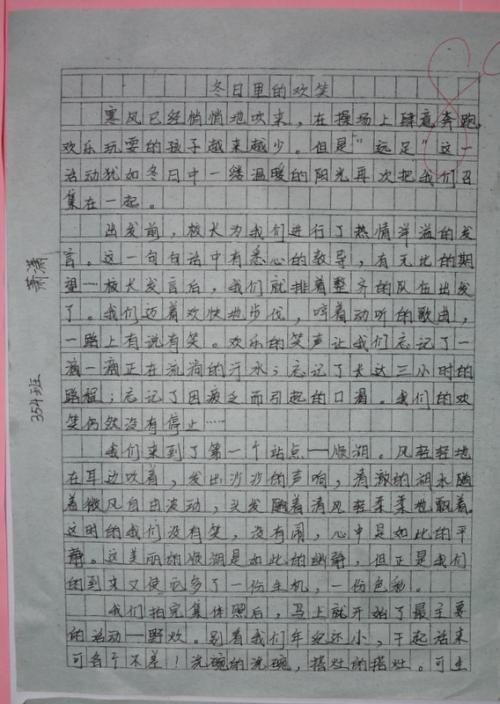 冬日里的欢笑
寒风已经悄悄地吹来，在操场上肆意奔跑
欢乐玩耍的孩子越来越少。但是"远足"这一
活动犹如冬日中一缕温暖的阳光再次把我们召
集在一起。
出发前，校长为我们进行了热情洋溢的发
言。这一句句话中有悉心的教导，有无比的期
望…校长发言后，我们就排着整齐的队伍出发
了。我们迈着欢快地步伐，哼着动听的歌曲，
一路上有说有笑。欢乐的笑声让我们忘记了一
滴一滴正在流淌的汗水；忘记了长达三小时的
路程；忘记了因疲乏而引起的口渴。我们的欢
笑仍然没有停止……
我们来到了第一个站点—顺湖。风轻轻地
在耳边吹着，发出沙沙的声响，清澈的湖水随
着微风自由波动，头发随着清风轻柔柔地飘着。
这时的我们没有笑，没有闹，心中是如此的平
静。这美丽的顺湖是如此的幽静，但正是我们
的到来又使它多了一份生机，一份色彩。
我们拍完集体照后，马上就开始了最主要
的活动—野炊。别看我们年纪还小，干起活来
可各个不差！洗碗的洗碗，搭灶的搭灶。可生
萧潇
354班